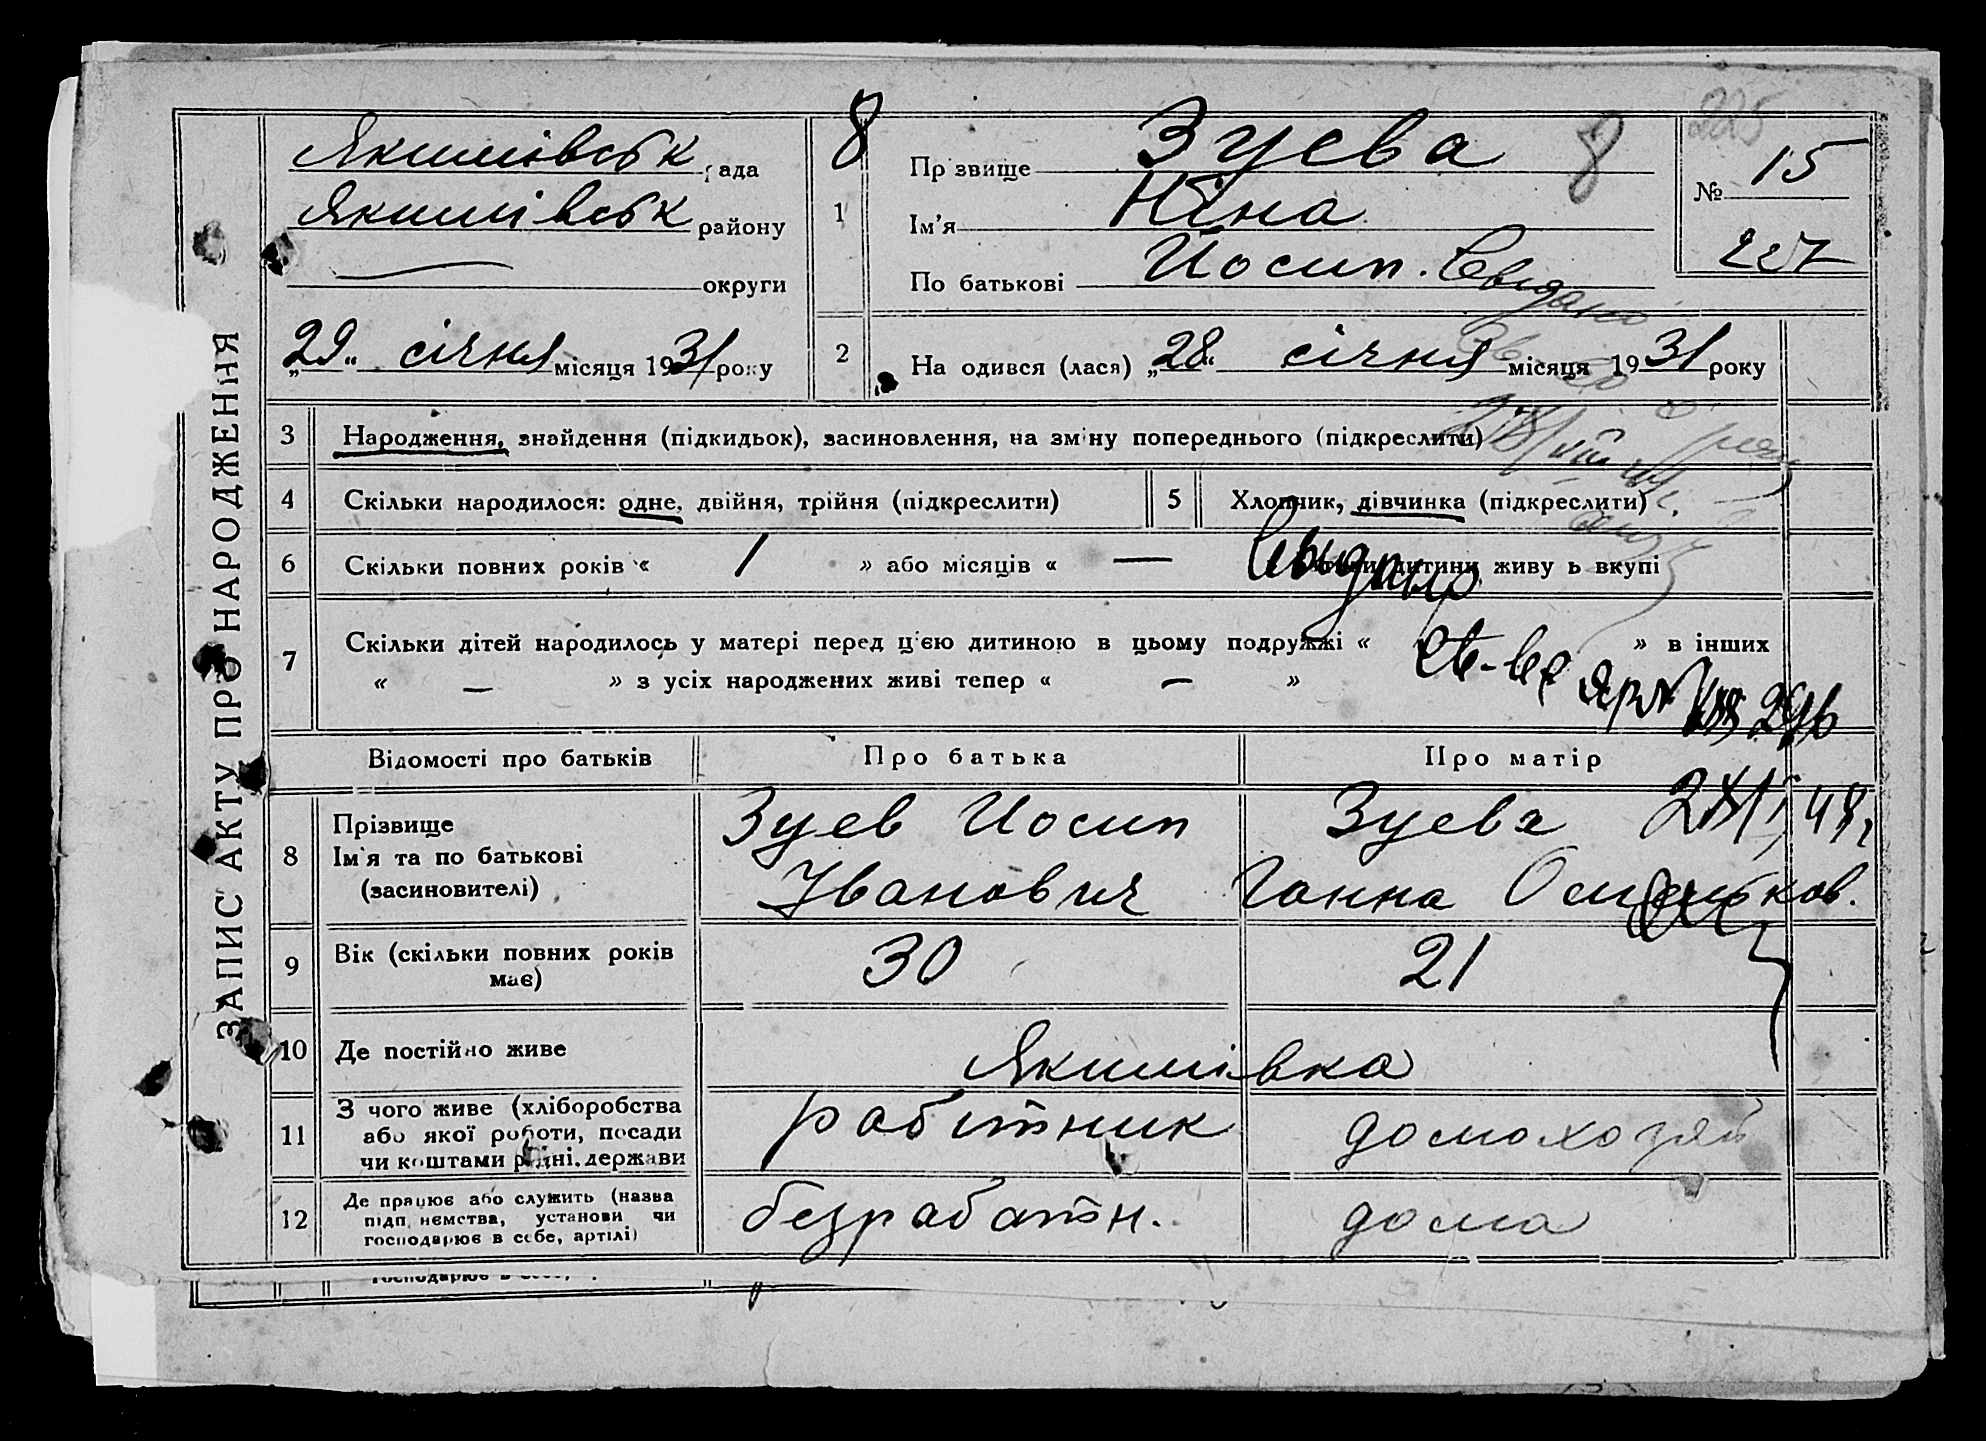 225
ЗАПИС АКТУ ПРО НАРОДЖЕННЯ
Якимівськ рада
Якимівськ району
округи
„29“ січня місяця 1931 року
8
1 Прізвище Зуєва
Ім’я Ніна
По батькові Йосип.
8
№ 15
227
2 Народився (лася) „28“ січня місяця 1931 року
3 Народження, знайдення (підкидьок), засиновлення, на зміну попереднього (підкреслити)
4 Скільки народилося: одне, двійня, трійня (підкреслити)
5 Хлопчик, дівчинка (підкреслити)
6 Скільки повних років « 1 » або місяців « — дитини живуть вкупі
7 Скільки дітей народилось у матері перед цією дитиною в цьому подружжі « » в інших
« — » з усіх народжених живі тепер « — »
Выдано
Св-во
Відомості про батьків
Про батька
Про матір
8 Прізвище
Ім’я та по батькові
(засиновителі)
Зуев Иосип
Іванович
Зуева
Ганна
9 Вік (скільки повних років
має)
30
21
10 Де постійно живе
Якимівка
11 З чого живе (хліборобства
або якої роботи, посади
чи коштами рідні, держави
робітник
домохозяй
12 Де працює або служить (назва
підприємства, установи чи
господарює в себе, артілі)
безработн.
дома